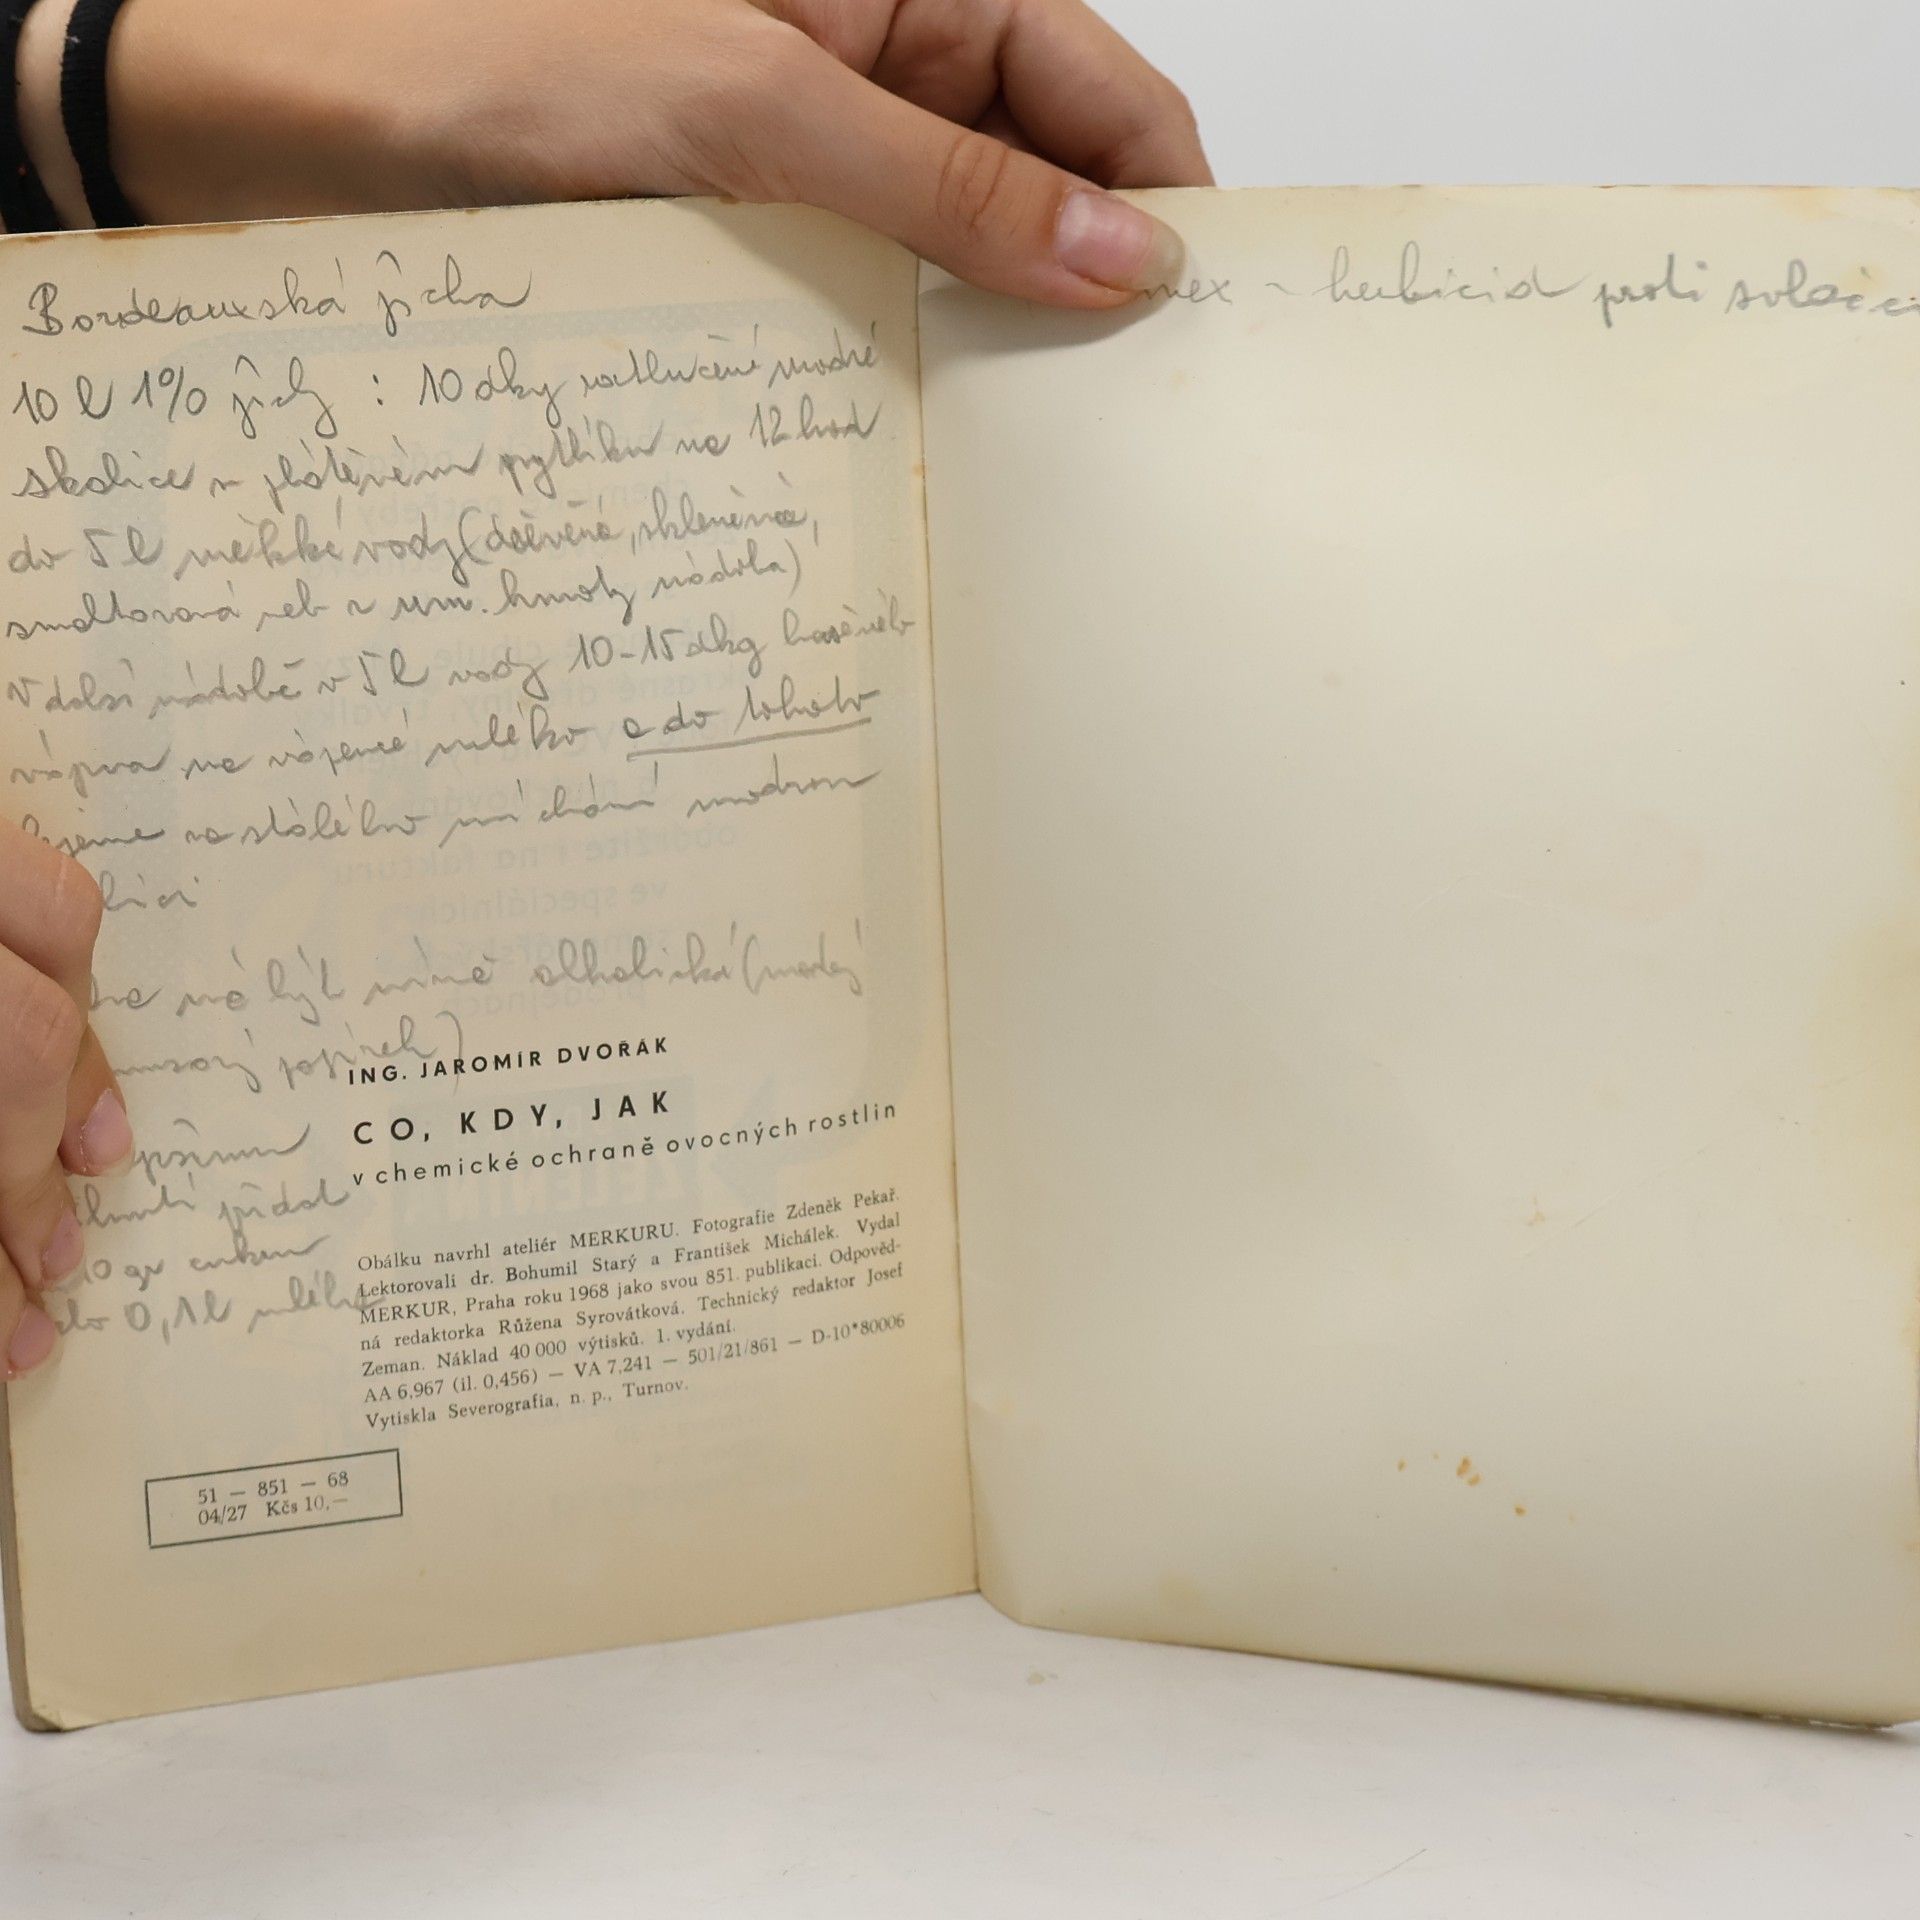 Bordeauxská jícha
10 l 1% jíchy : 10 dky roztlučené modré
skalice v plátěném pytlíku na 12 hod
do 5 l měkké vody (dřevěná, skleněná,
smaltovaná neb z um. hmoty nádoba)
V další nádobě v 5 l vody 10-15 dkg hašeného
vápna na vápené mléko a do tohoto
za stálého míchání modrou
má být mírně alkalická (modrý
papírek)
přidat
10 gr cukru
0,1 l mléka
ING. JAROMÍR DVOŘÁK
CO, KDY, JAK
v chemické ochraně ovocných rostlin
Obálku navrhl ateliér MERKURU. Fotografie Zdeněk Pekař.
Lektorovali dr. Bohumil Starý a František Michálek. Vydal
MERKUR, Praha roku 1968 jako svou 851. publikaci. Odpověd-
ná redaktorka Růžena Syrovátková. Technický redaktor Josef
Zeman. Náklad 40 000 výtisků. 1. vydání.
AA 6,967 (il. 0,456) — VA 7,241 — 501/21/861 — D-10*80006
Vytiskla Severografia, n. p., Turnov.
51 — 851 — 68
04/27 Kčs 10,—
- herbicid proti